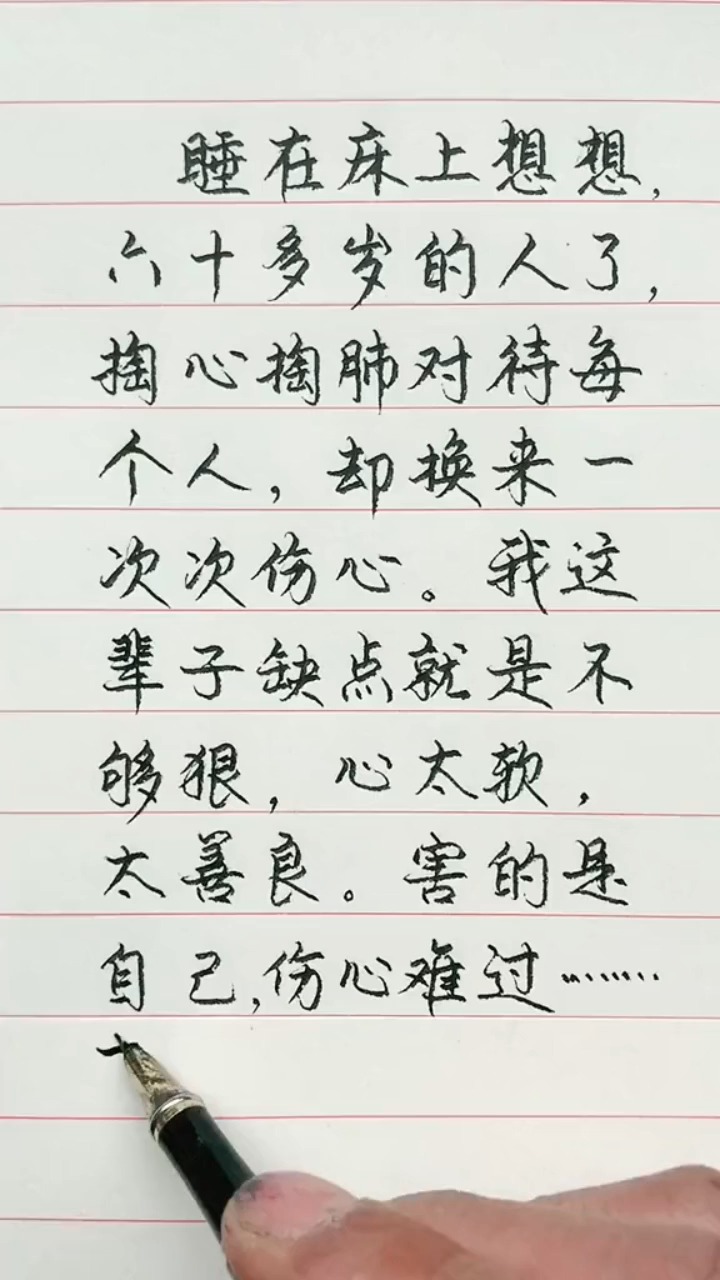 睡在床上想想,
六十多岁的人了,
掏心掏肺对待每
个人,却换来一
次次伤心。我这
辈子缺点就是不
够狠,心太软,
太善良。害的是
自己,伤心难过……